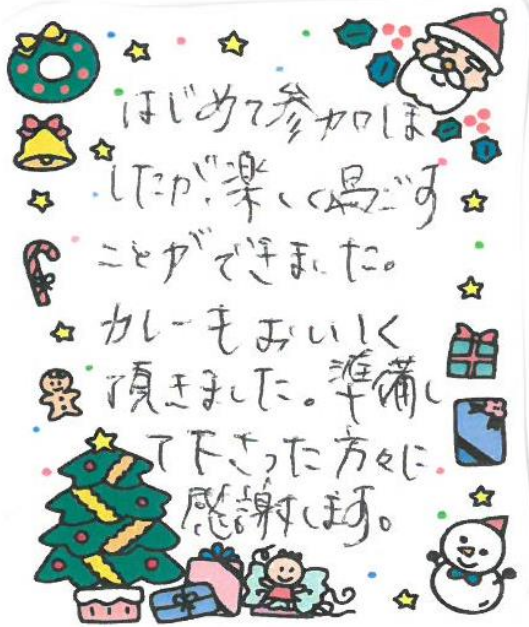 はじめて参加しま
したが、楽しく過ごす
ことができました。
カレーもおいしく
頂きました。準備し
て下さった方々に
感謝します。